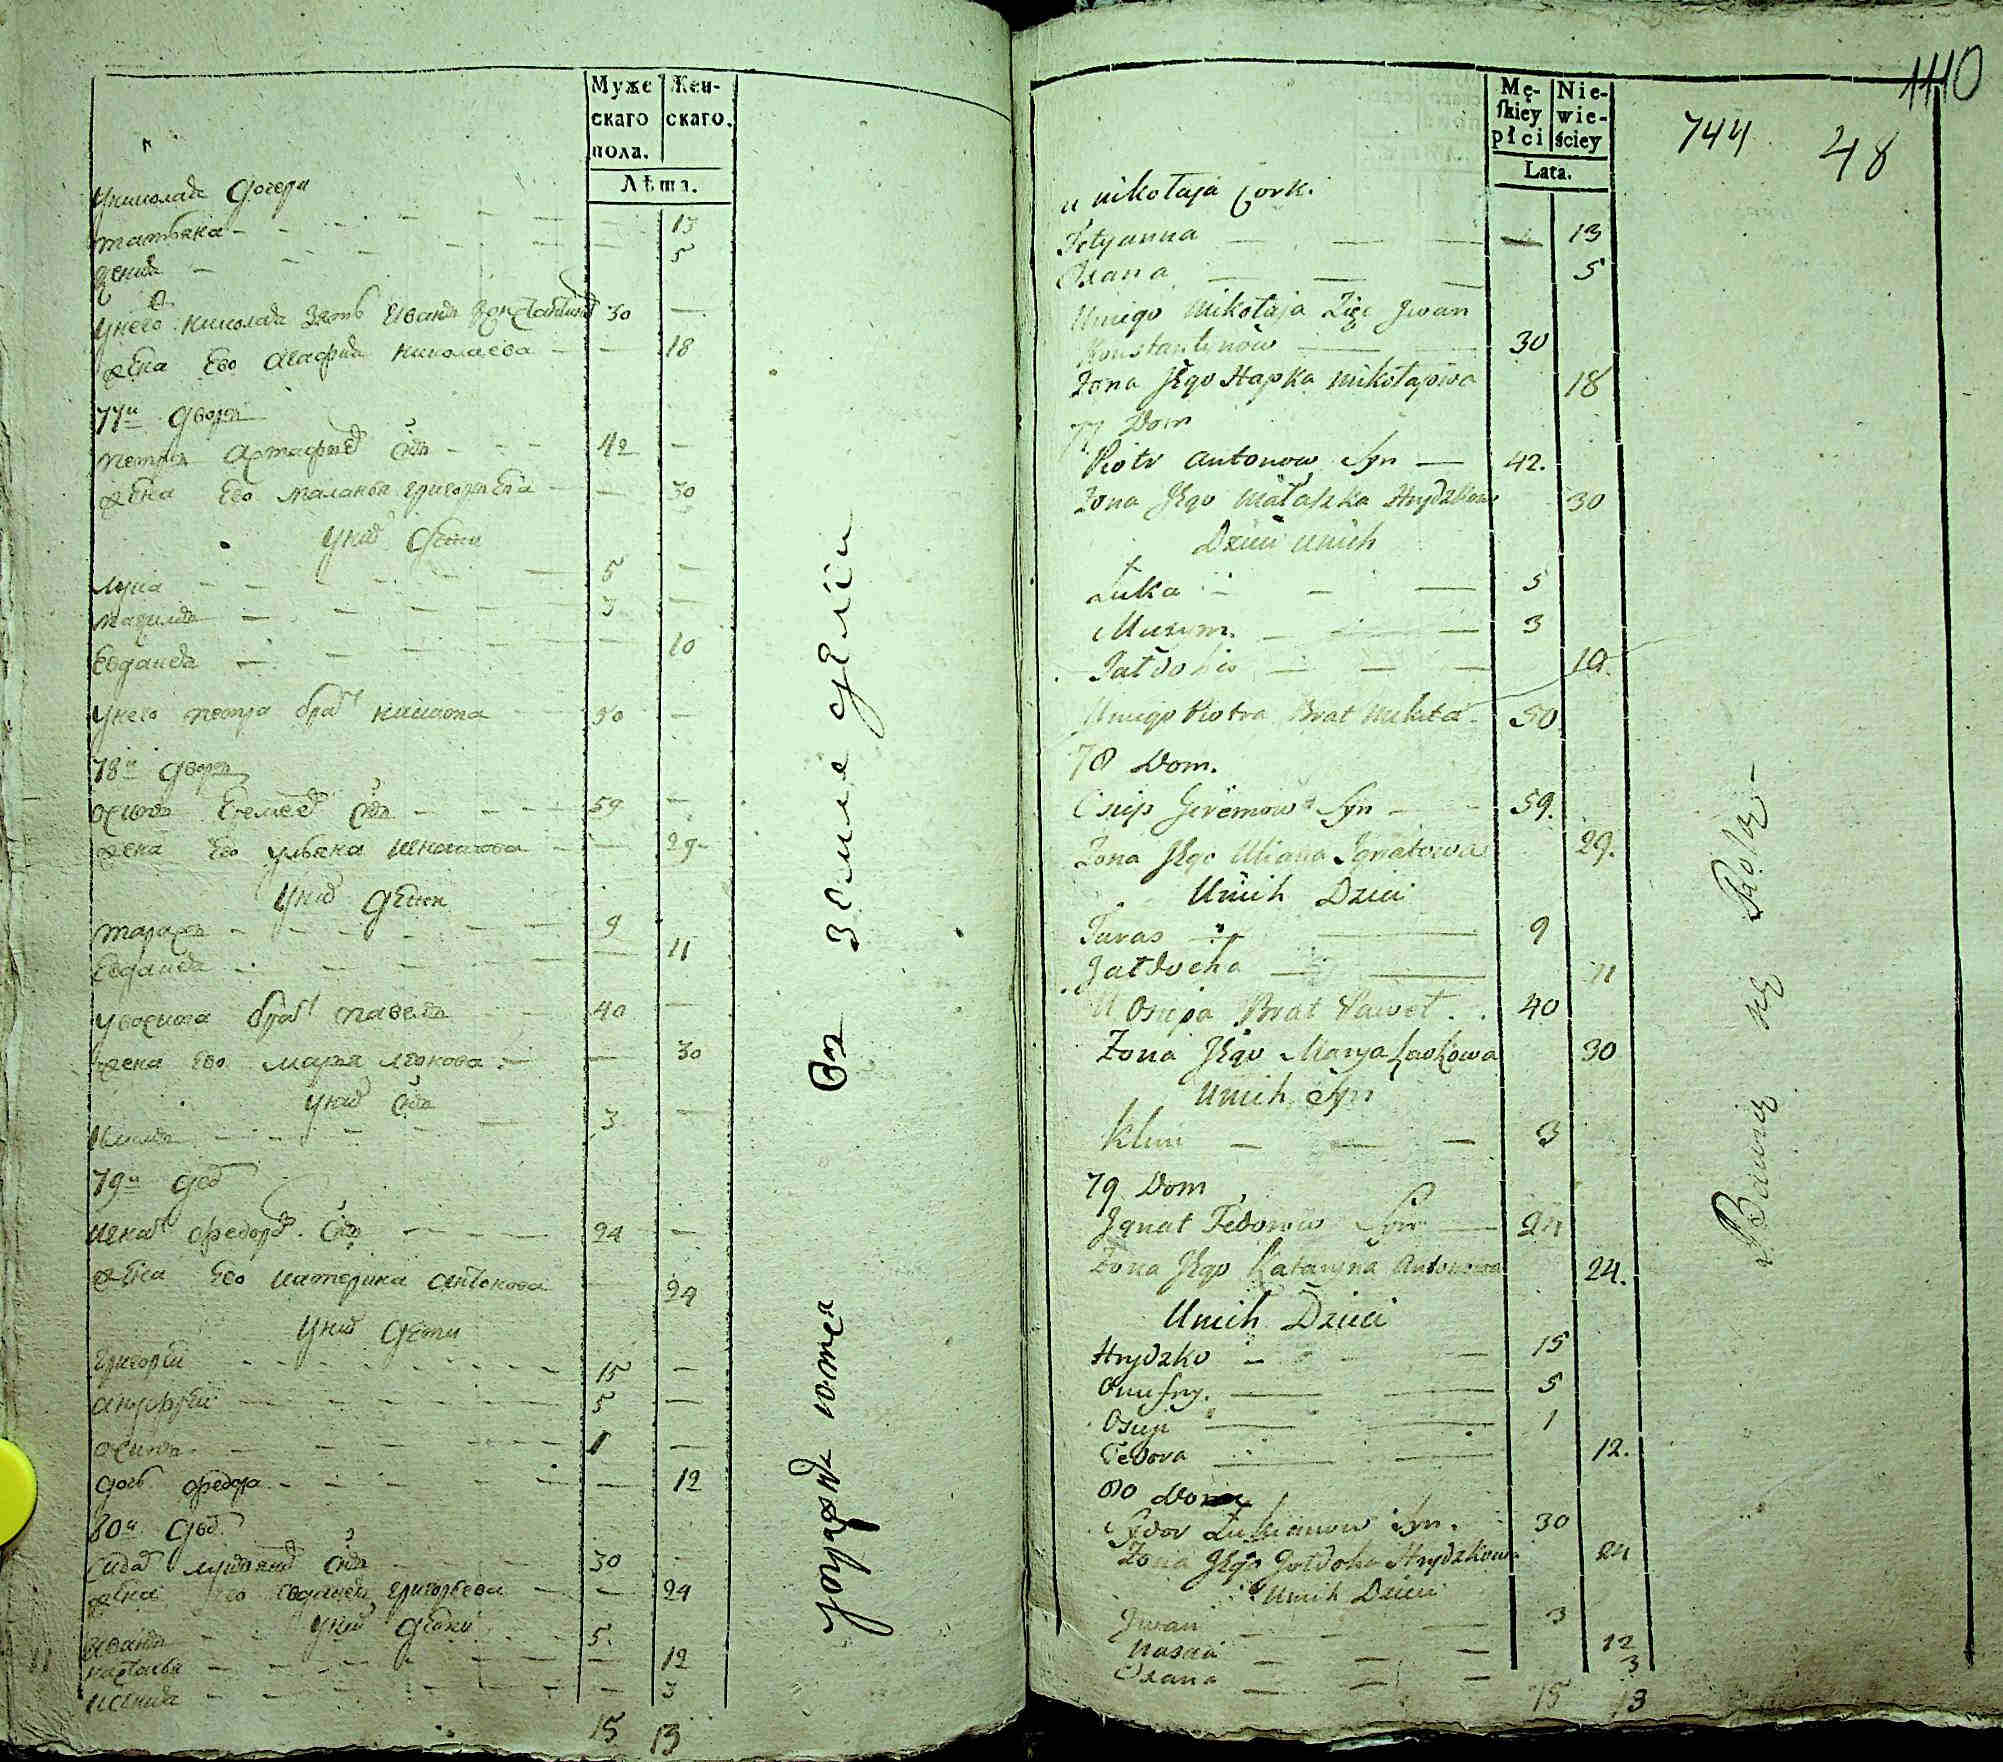 Муже
скаго
пола.
Жен-
скаго.
Лѣта.
Униколая дочери
татьяна 13
5
Унего николая зять Иванъ 30
жена Его Агафия николаева 18
77й дворъ
петръ сынъ 42
жена Его маланья григорьева 30
Уних дети
лука 5
3
Евдокия 10
Унего петра братъ никита 50
78й дворъ
осипъ сынъ 59
жена Его ульяна игнатова 29
Уних дети
тарасъ 9
Евдокия 11
уосипа братъ павелъ 40
жена Его марья 30
Уних сынъ
климъ 3
79й дво
игнат федоров сын 24
жена Его катерина антонова 24
Уних дети
Григорий 15
ануфрий 5
осипъ 1
дочь федора 12
80й дво
сидор сынъ 30
жена Его григорьева 24
Уних дети
Иванъ 5
настасья 12
3
15 13
въ земледелии
1110
744 48
Mę-
ſkiey
płci
Nie-
wie-
ściey
Lata.
u nikołaja Cork.
Tetyanna 13
Oxana 5
Uniego Mikołaja Zięc Jwan
Konstantynow 30
Zona Jego Hapka Mikołajowa 18
77 Dom
Piotr Antonow Syn 42.
Zona Jego Małaszka Hrydzkowa 30
Dzieci unich
Łuka 5
3
10.
Uniego Piotra Brat Mikita 50
78 Dom.
Osip Jeremow Syn 59.
Zona Jego Uliana Jgnatowa 29.
Unich Dzieci
Taras 9
Jałdocha 11
U Osipa Brat Paweł 40
Zona Jego Marya 30
Unich Syn
Klim 3
79 Dom
Jgnat Fedorow Syn 24
Zona Jego Katarżyna Antonowa 24.
Unich Dzieci
Hrydzko 15
Onufry. 5
Osip 1
Fedora 12.
80 Dom
Sydor Łukianow Syn. 30
Zona Jego Hrydzkowa 24
Unich Dzieci
Jwan 3
12
Oxana 3
15 13
Bawią się Rolą